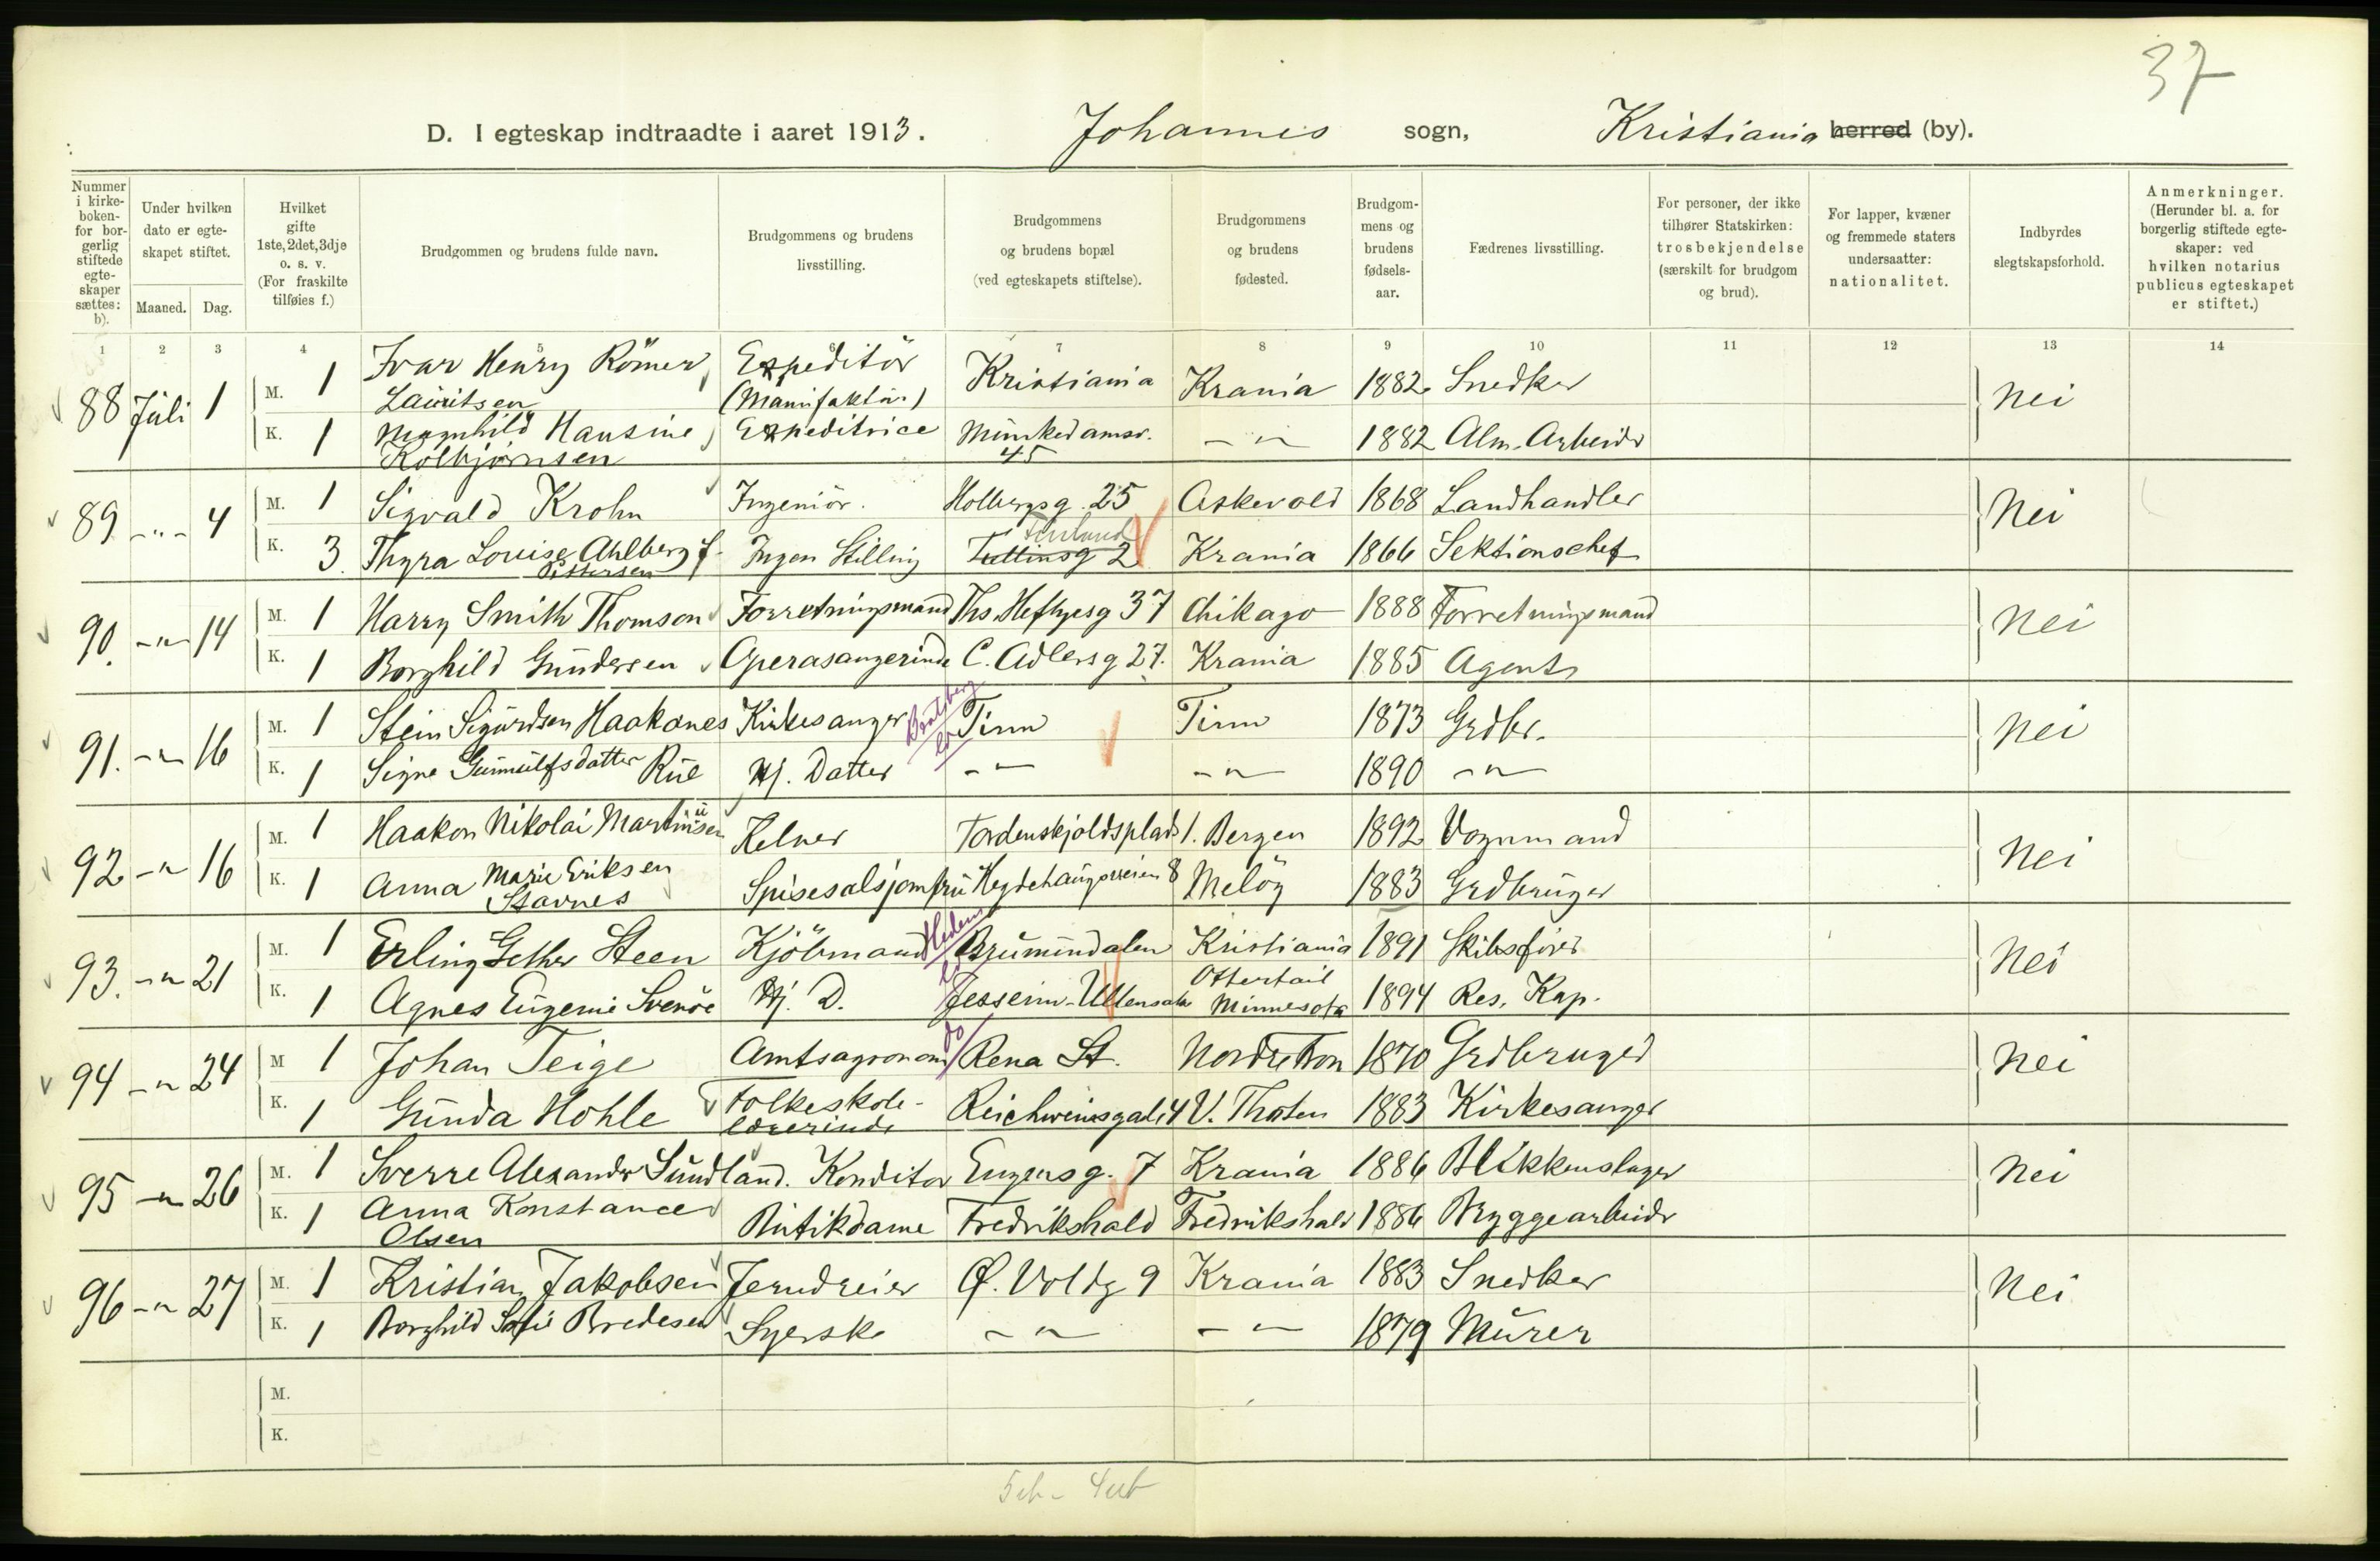 37
D. I egteskap indtraadte i aaret 1913. Johannes sogn, Kristiania herred (by).
Nummer i kirke-boken- for bor-gerlig stiftede egte-skaper sættes: b).
Under hvilken dato er egte-skapet stiftet.
Maaned. Dag.
Hvilket gifte 1ste, 2det, 3dje o. s. v. (For fraskilte tilføies f.)
Brudgommen og brudens fulde navn.
Brudgommens og brudens livsstilling.
Brudgommens og brudens bopæl (ved egteskapets stiftelse).
Brudgommens og brudens fødested.
Brudgom-mens og brudens fødsels-aar.
Fædrenes livsstilling.
For personer, der ikke tilhører Statskirken: trosbekjendelse (særskilt for brudgom og brud).
For lapper, kvæner og fremmede staters undersaatter: nationalitet.
Indbyrdes slegtskapsforhold.
Anmerkninger. (Herunder bl. a. for borgerlig stiftede egte-skaper: ved hvilken notarius publicus egteskapet er stiftet.)
1 2 3 4 5 6 7 8 9 10 11 12 13 14
88 Juli 1 M. 1 Ivar Henry Römer Lauritsen Expeditör (Manufaktur) Kristiania Krania 1882 Snedker Nei
K. 1 Magnhild Hansine Kolbjørnsen Expeditrice Munkedamsv. 45 -"- 1882 Alm. Arbeider
89 -"- 4 M. 1 Sigvald Krohn Ingeniør. Holbergsg. 25 Askevold 1868 Landhandler Nei
K. 3. Thyra Louise Ahlberg f. Pettersen Ingen Stilling Tullinsg 2 Finland Krania 1866 Sektionschef
90. -"- 14 M. 1 Harry Smith Thomson Forretningsmand Ths. Heftyesg 37 Chikago 1888 Forretningsmand Nei
K. 1 Borghild Gundersen Operasangerinde C. Adlersg 27. Krania 1885 Agent
91. -"- 16 M. 1 Stein Sigurdsen Haakanes Kirkesanger Bratsberg Tinn Tinn 1873 Grdbr. Nei
K. 1 Signe Gunnulfsdatter Rue Hj. Datter -"- -"- 1890 -"-
92 -"- 16 M. 1 Haakon Nikolai Martinusen Kelner Tordenskjoldsplads 1. Bergen 1892 Vognmand Nei
K. 1 Anna Marie Eriksen Stavnes Spisesalsjomfru Hegdehaugsveien 8 Meløy 1883 Grdbruger
93. -"- 21 M. 1 Erling Gether Steen Kjöbmand Hedem Brumunddalen Kristiania 1891 Skibsfører Nei
K. 1 Agnes Eugenie Svenöe Hj. D. Jesseim-Ullensaker Ottertail Minnesota 1894 Res. Kap.
94 -"- 24 M 1 Johan Teige Amtsagronom do Rena St. Nordre Fron 1870 Grdbruger Nei
K. 1 Gunda Hohle Folkeskole-lærerinde Reichweinsgade 4 V. Thoten 1883 Kirkesanger
95 -"- 26 M. 1 Sverre Alexander Sundland. Konditor Eugensg. 7 Krania 1886 Blikkenslager Nei
K. 1 Anna Konstance Olsen Butikdame Fredrikshald Fredrikshald 1886 Bryggearbeider
96 -"- 27 M. 1 Kristian Jakobsen Jerndreier Ø. Voldg 9 Krania 1883 Snedker Nei
K. 1 Borghild Sofie Bredesen Syerske -"- -"- 1879 Murer
M.
K.